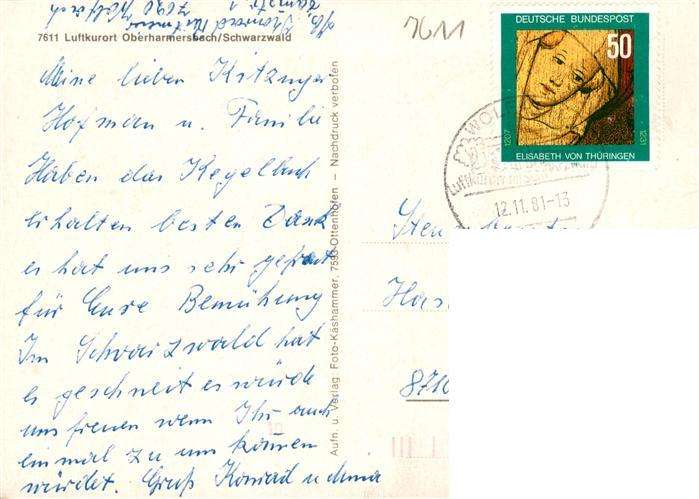 7611 Luftkurort Oberharmersbach/Schwarzwald
7611
Meine lieben Kitzinger
Hofmann u. Familie
Haben das Kegelbuch
erhalten besten Dank
es hat uns sehr gefreut
für Eure Bemühung
Im Schwarzwald hat
es geschneit es würde
uns freuen wenn Ihr auch
einmal zu uns kommen
würdet. Gruß Konrad u
Aufn. u. Verlag Foto-Käshammer, 7593 Ottenhöfen – Nachdruck verboten
DEUTSCHE BUNDESPOST
50
1207
1231
ELISABETH VON THÜRINGEN
WOL
12.11.81-13
8710